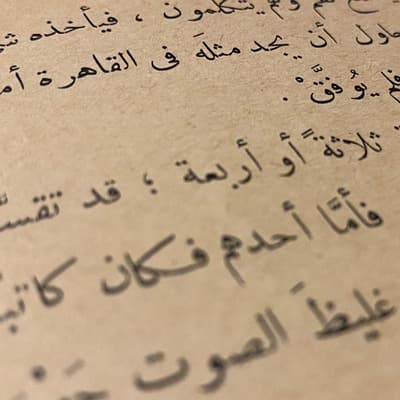 هم ولم يتكلمون ، فيأخذه
حاول أن يجد مثلَه فى القاهرة
فلم يُوفقَّ .
ثلاثةً أو أربعة ؛ قد
فأمَّا أحدهم فكان
غليظَ الصوت